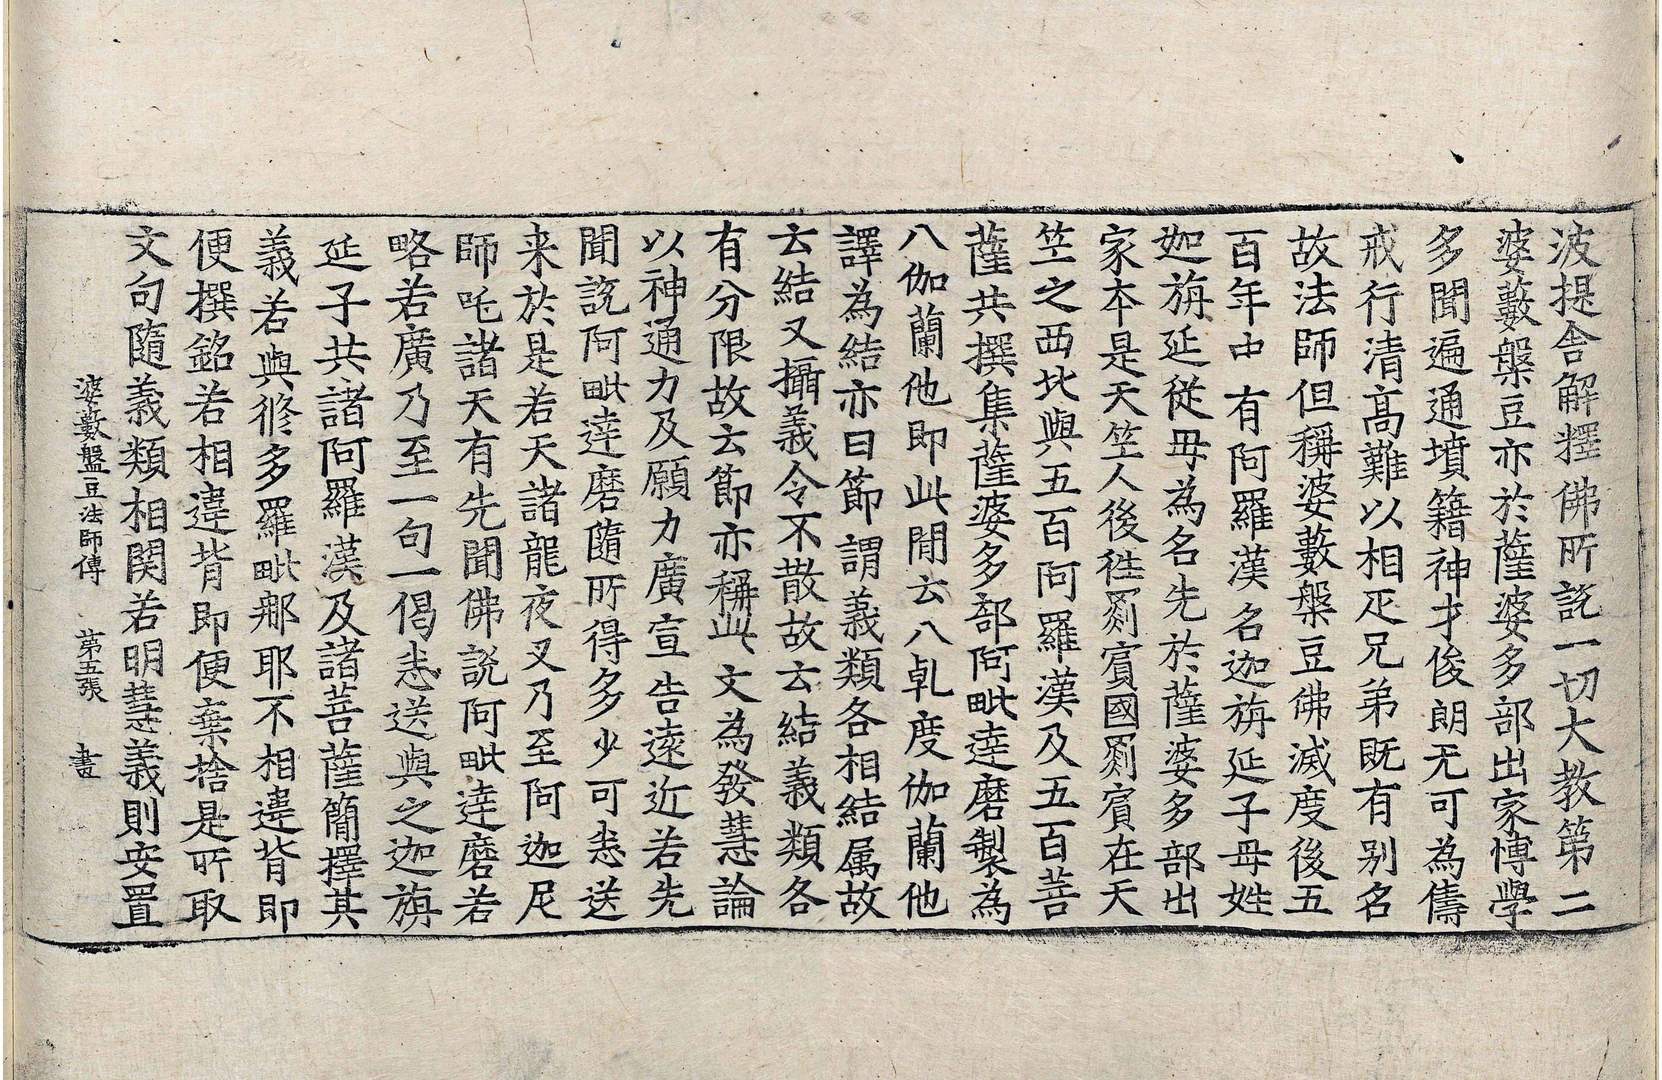 波提舍解釋佛所說一切大教第二
婆藪槃豆亦於薩婆多部出家愽學
多聞遍通墳籍神才俊朗无可為儔
戒行清髙難以相疋兄弟既有别名
故法師但稱婆藪槃豆佛滅度後五
百年中有阿羅漢名迦旃延子母姓
迦旃延從母為名先於薩婆多部出
家本是天竺人後徃罽賓國罽賓在天
竺之西北與五百阿羅漢及五百菩
薩共撰集薩婆多部阿毗達磨製為
八伽蘭他即此間云八乹度伽蘭他
譯為結亦曰節謂義類各相結属故
云結又攝義令不散故云結義類各
有分限故云節亦稱此文為發慧論
以神通力及願力廣宣告遠近若先
聞說阿毗達磨隨所得多少可悉送
来於是若天諸龍夜叉乃至阿迦尼
師吒諸天有先聞佛說阿毗達磨若
略若廣乃至一句一偈悉送與之迦旃
延子共諸阿羅漢及諸菩薩簡擇其
義若與修多羅毗那耶不相違背即
便撰銘若相違背即便棄捨是所取
文句隨義類相関若明慧義則安置
婆藪盤豆法師傳 第五張 畫